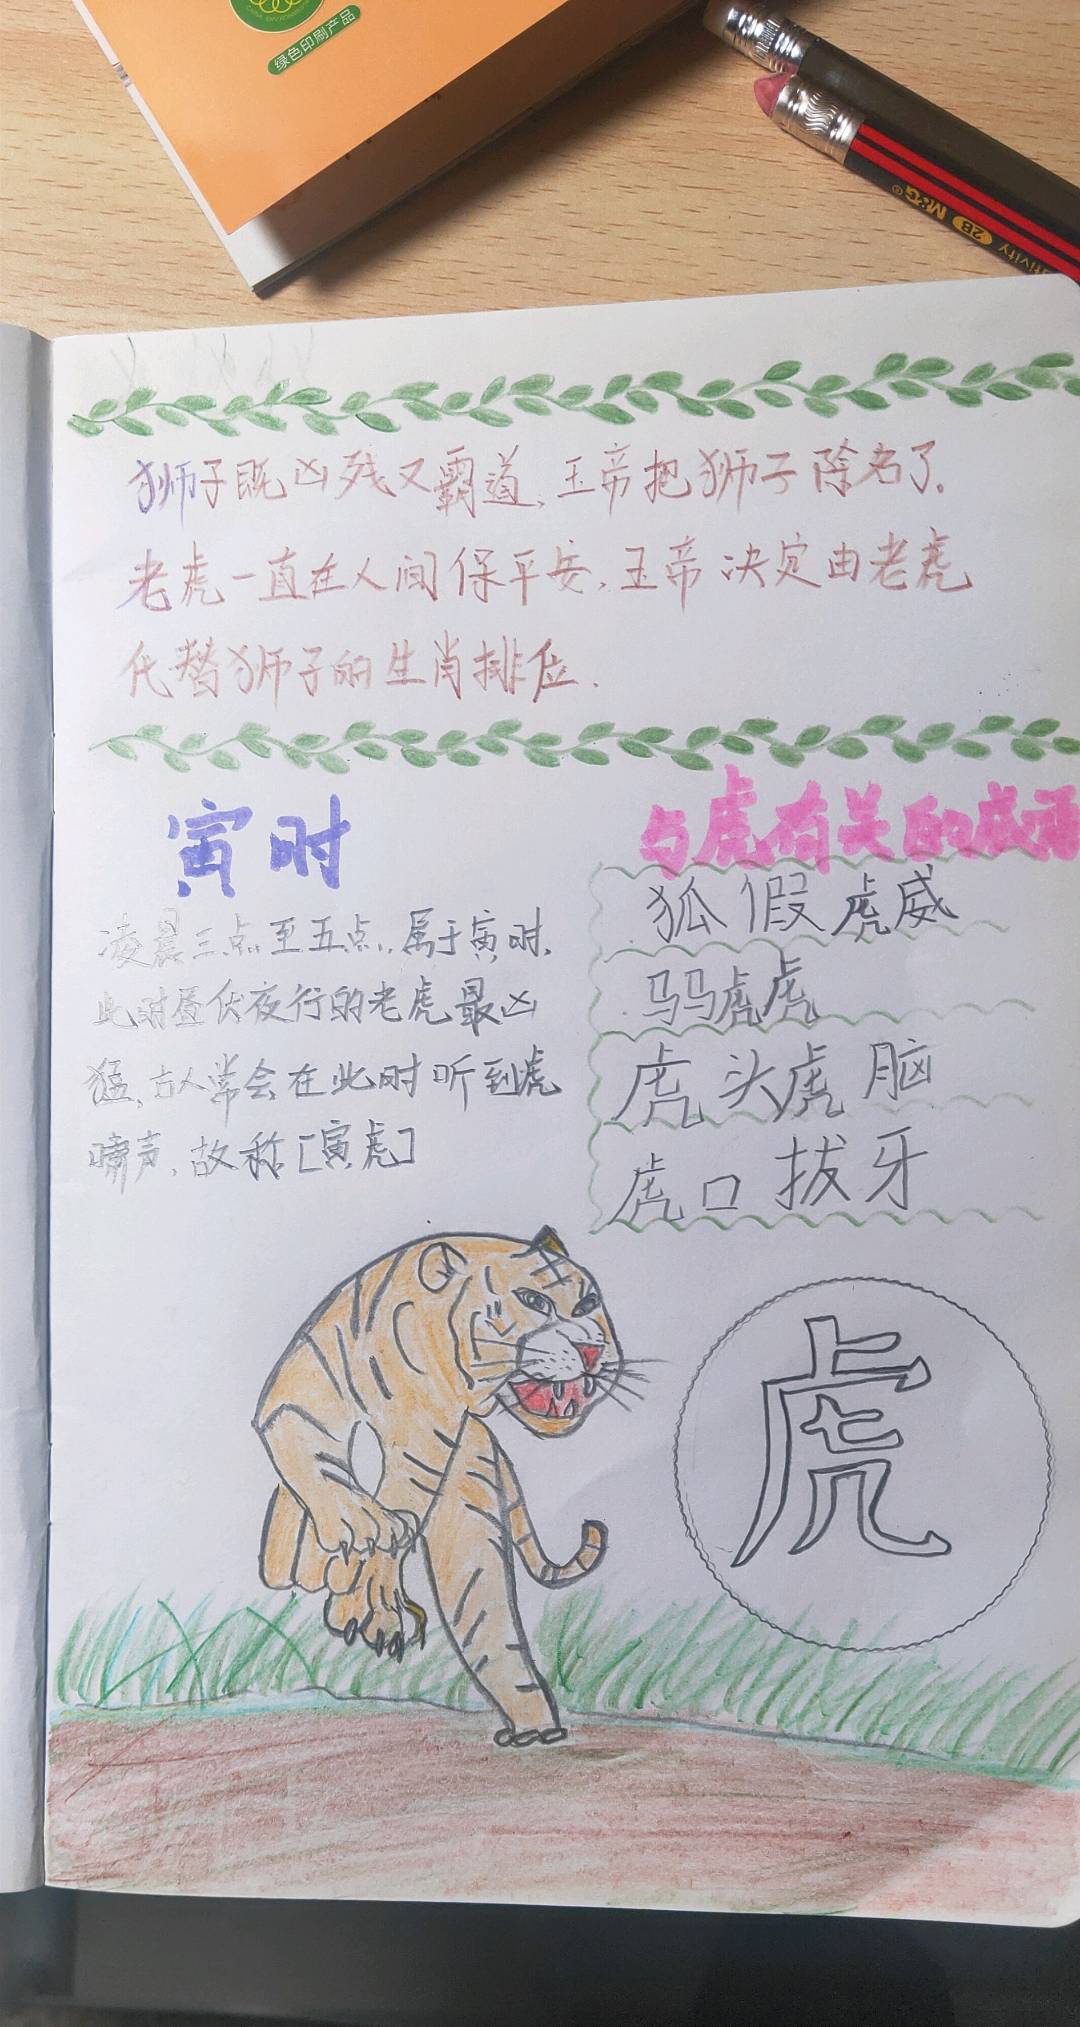 绿色印刷产品
M&G 2B
狮子既凶残又霸道,玉帝把狮子除名了.
老虎一直在人间保平安,玉帝决定由老虎
代替狮子的生肖排位.
寅时
凌晨三点至五点,属于寅时,
此时昼伏夜行的老虎最凶
猛,古人常会在此时听到虎
啸声,故称[寅虎]
与虎有关的成语
狐假虎威
马马虎虎
虎头虎脑
虎口拔牙
虎